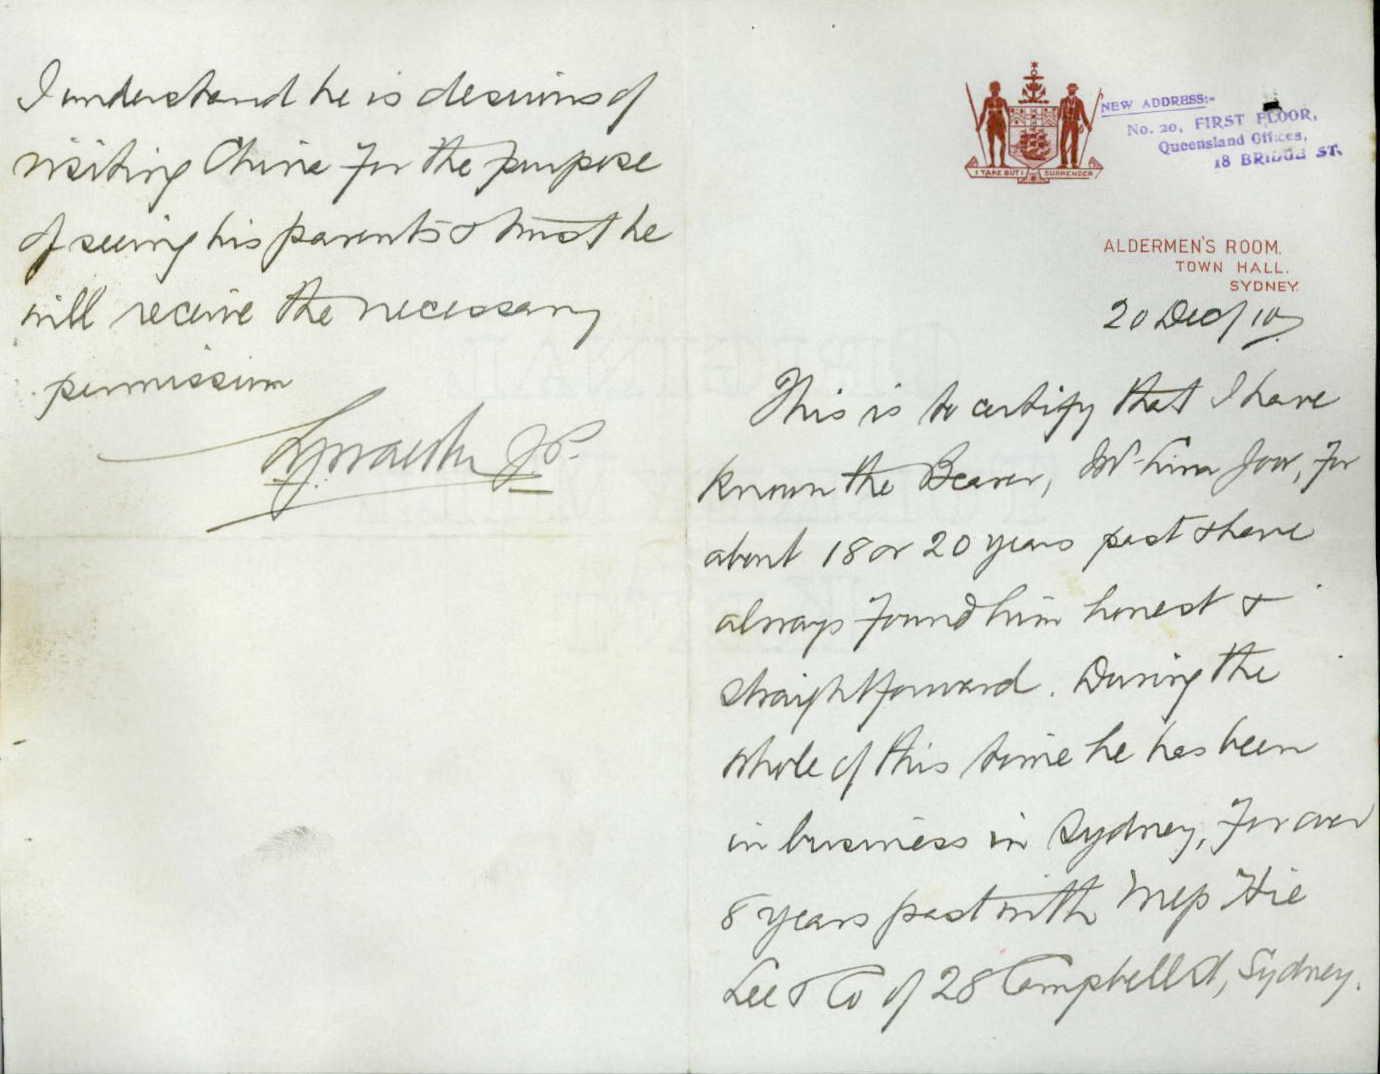 NEW ADDRESS:-
No. 20, FIRST FLOOR,
Queensland Offices,
18 BRIDGE ST.
I TAKE BUT I SURRENDER
ALDERMEN'S ROOM.
TOWN HALL.
SYDNEY.
20 Dec/10
This is to certify that I have
known the Bearer, Wm Kim Joor, for
about 18 or 20 years past & have
always found him honest &
straightforward. During the
whole of this time he has been
in business in Sydney, for over
8 years past with Mess Hie
Lee & Co of 28 Campbell St, Sydney.
I understand he is desirous of
visiting China for the purpose
of seeing his parents & trust he
will receive the necessary
permission
JP.